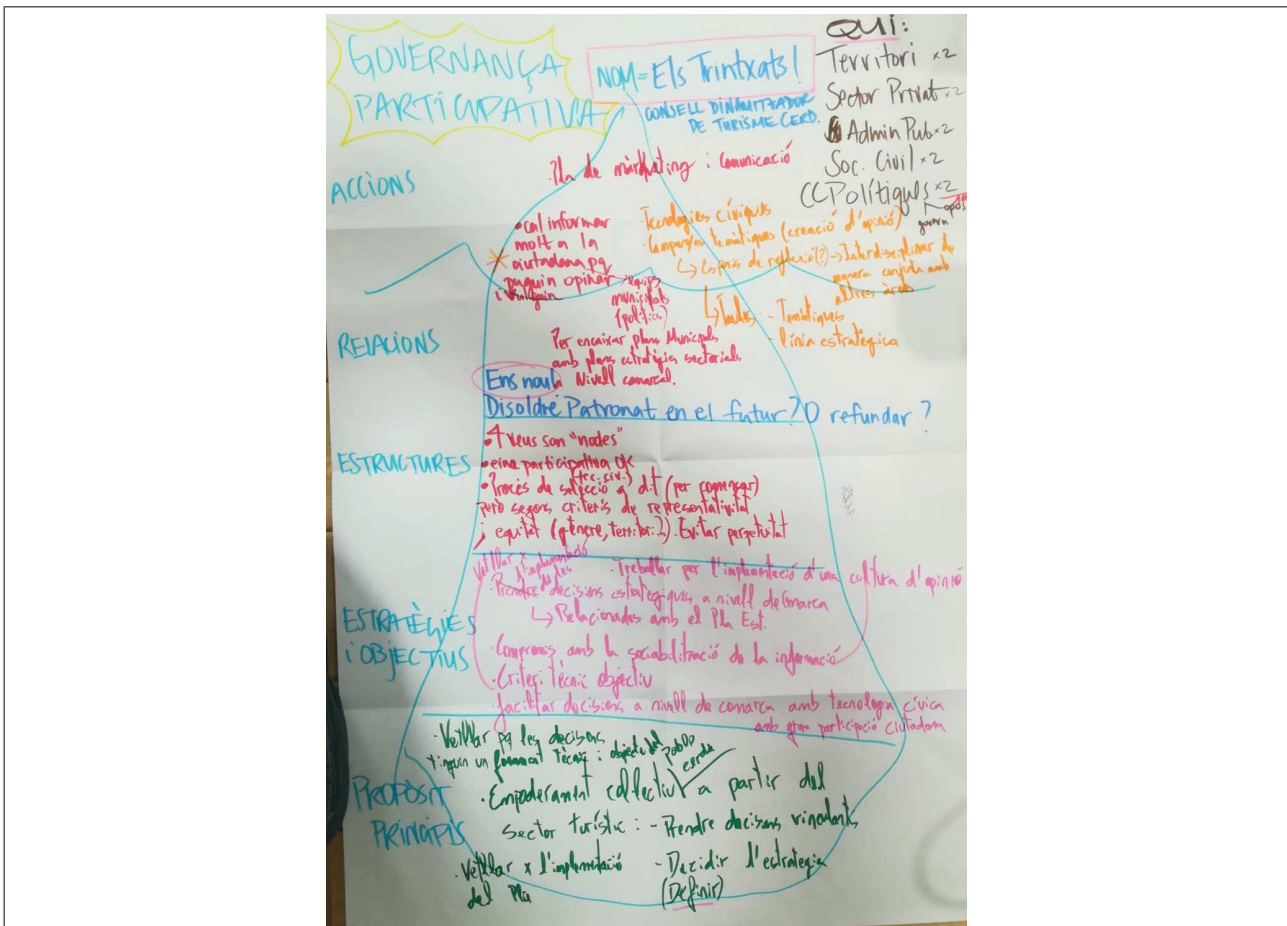 GOVERNANÇA
PARTICIPATIVA
NOM = Els Trintxats!
CONSELL DINAMITZADOR
DE TURISME CERD.
QUI:
Territori x2
Sector Privat x2
Admin Pub x2
Soc. Civil x2
CCPolítiques x2
govern
ACCIONS
Pla de màrketing i comunicació
• cal informar
molt a la
ciutadana pq
puguin opinar
i vulguin
equips
municipals
(polítics)
· Tecnologies cíviques
· Campanyes temàtiques (creació d'opinió)
↳ Espais de reflexió(?) → Interdisciplinar de
manera conjunta amb
altres àrees
↳ Taules: - Temàtiques
- línia estratègica
RELACIONS
Per encaixar plans Municipals
amb plans estratègics sectorials
a Nivell comarcal.
Ens nou
Disoldre Patronat en el futur? O refundar?
ESTRUCTURES
• 4 veus son "nodes"
• eina participativa OK
(tec. civ.)
• Procés de selecció a dit (per començar)
però segons criteris de representativitat
i equitat (gènere, territori...). Evitar perpetuitat
ESTRATÈGIES
i OBJECTIUS
Vetllar x
l'implementació
de les
· Treballar per l'implementació d'una cultura d'opinió
· Prendre decisions estratègiques a nivell de comarca
↳ Relacionades amb el Pla Est.
· Compromís amb la sociabilització de la informació
· Criteri tècnic objectiu
· facilitar decisions a nivell de comarca amb tecnologia cívica
amb gran participació ciutadana
PROPÒSIT
PRINCIPIS
· Vetllar pq les decisions
tinguin un fonament tècnic i objectiu
· Empoderament col·lectiu a partir del
sector turístic: - Prendre decisions vinculants
· Vetllar x l'implementació
del Pla
- Decidir l'estrategia
(Definir)